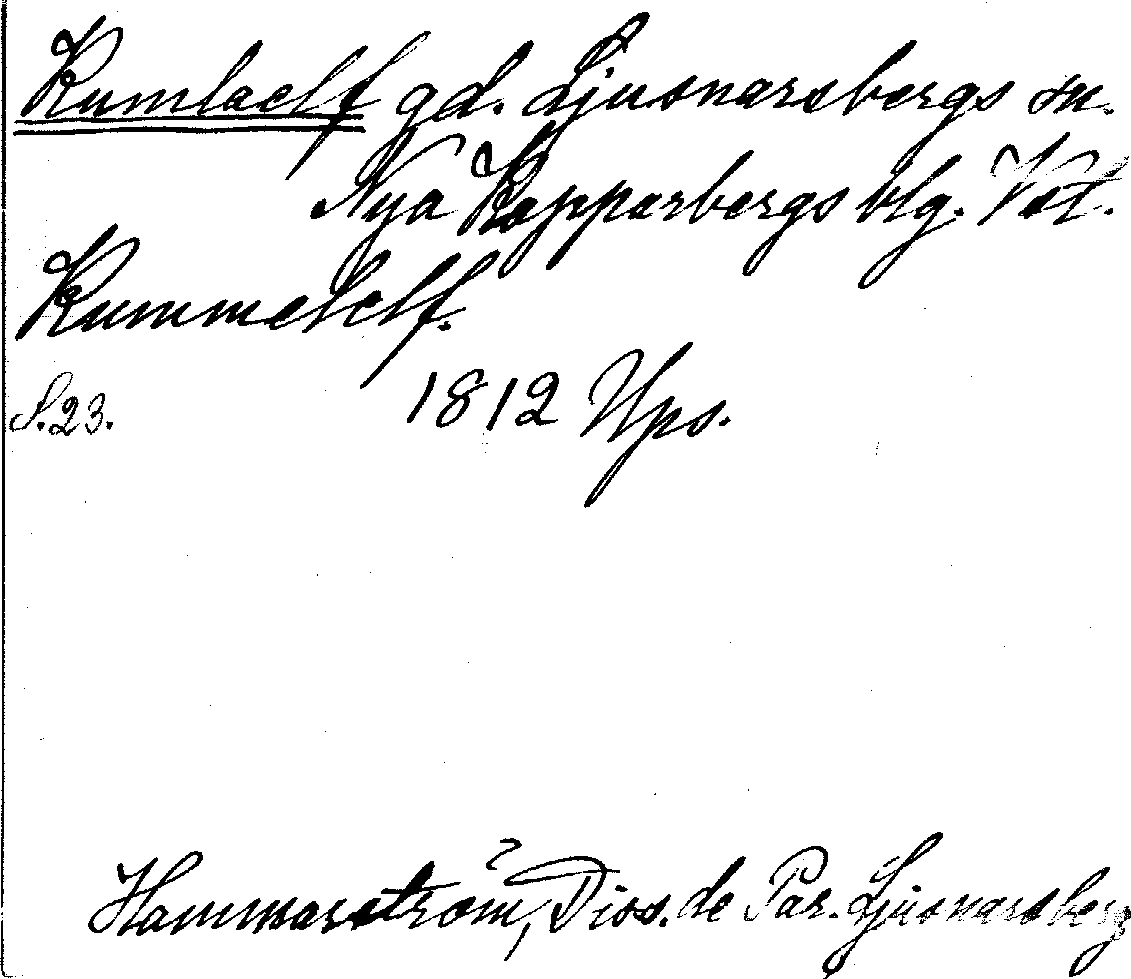 Kumlaelf gd. Ljusnarsbergs sn.
Nya Kopparbergs blg. Vstl.
Kummelelf.
S. 23. 1812 Ups.
Hammarström, Diss. de Par. Ljusnarsberg